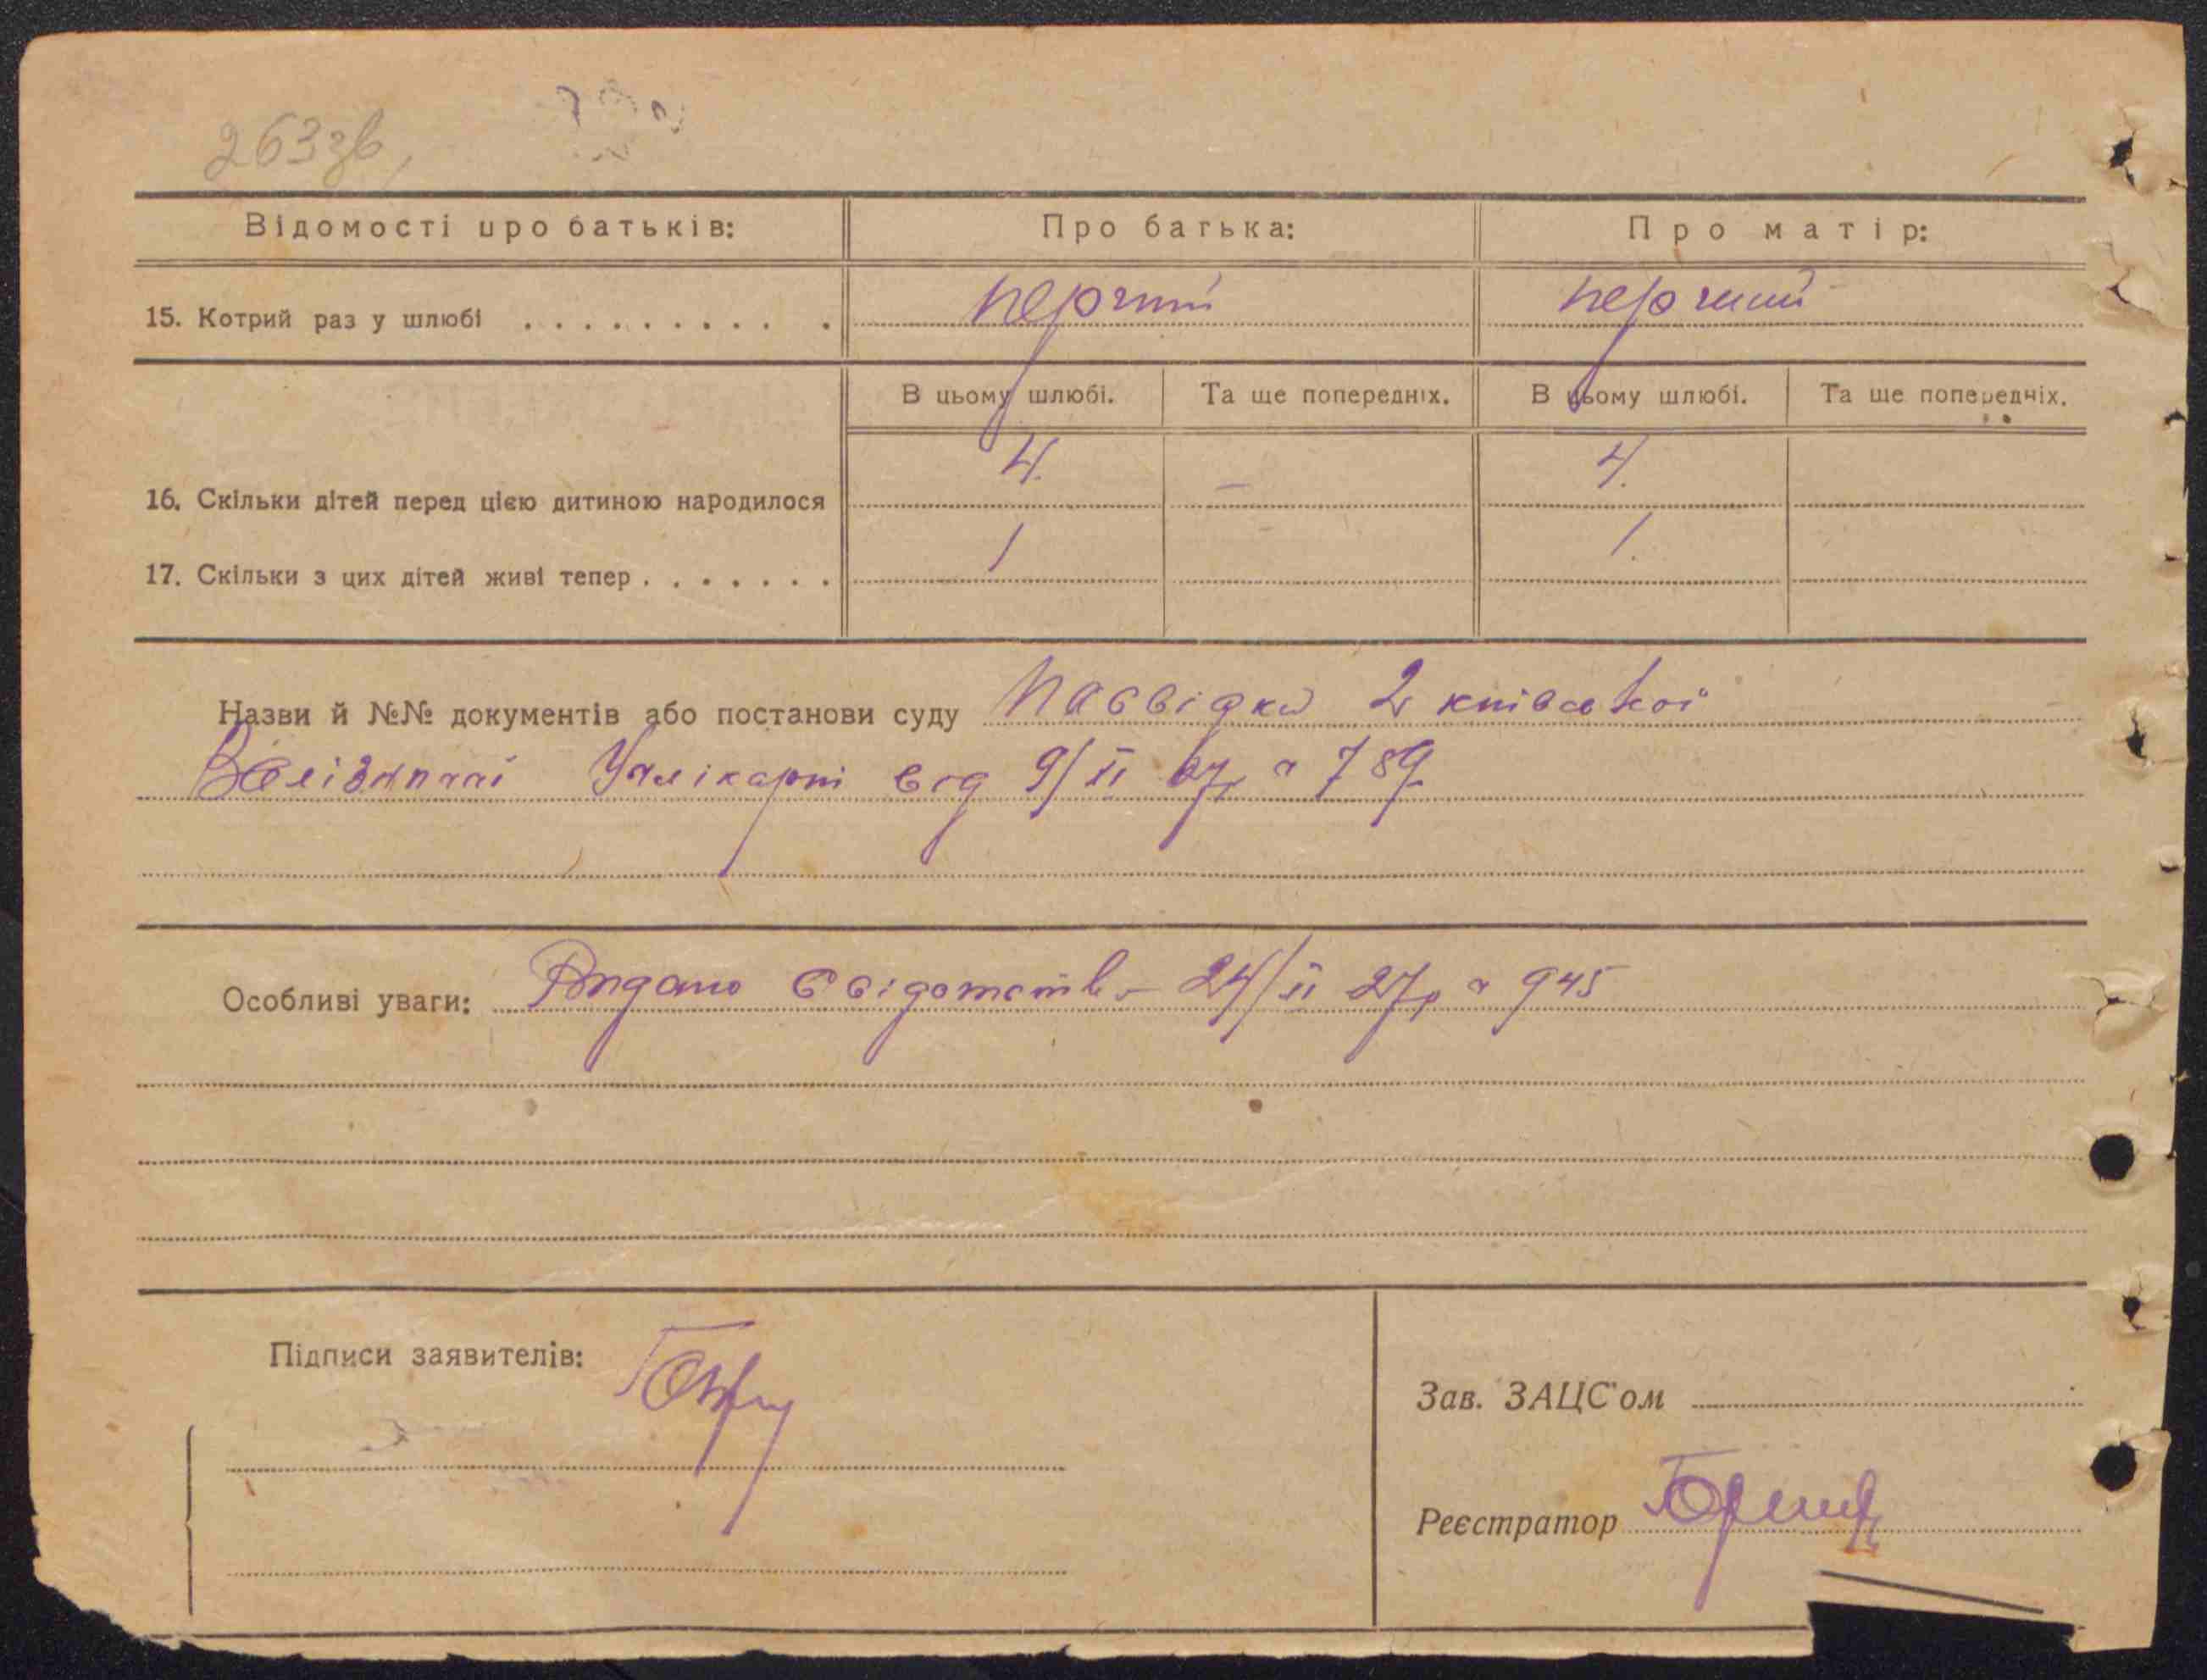 263зв
Відомості про батьків: Про батька: Про матір:
15. Котрий раз у шлюбі . . . . . . . . . . перший перший
В цьому шлюбі. Та ще попередніх. В цьому шлюбі. Та ще попередніх.
16. Скільки дітей перед цією дитиною народилося 4. — 4.
17. Скільки з цих дітей живі тепер . . . . . . . 1 1.
Назви й №№ документів або постанови суду Посвідка 2 київської
лікарні від 9/II 27р 789
Особливі уваги: Видано свідотств- 24/II 27р 945
Підписи заявителів:
Зав. ЗАЦС'ом
Реєстратор